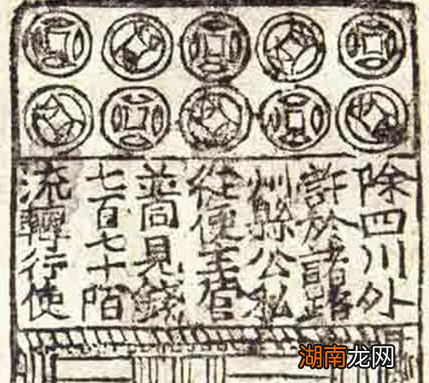 除四川外
許於諸路
州縣公私
往使主管
並同見錢
七百七十陌
流轉行使
湖南龙网